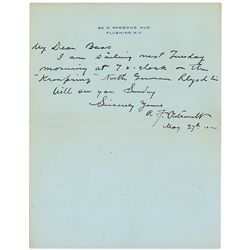 36 N. PARSONS AVE.
FLUSHING, N.Y.
My Dear Bass
I am sailing next Tuesday
morning at 7 o-clock on the
North German Lloyd
Will see you Sunday
Sincerely Yours
R F Outcault
May 27th